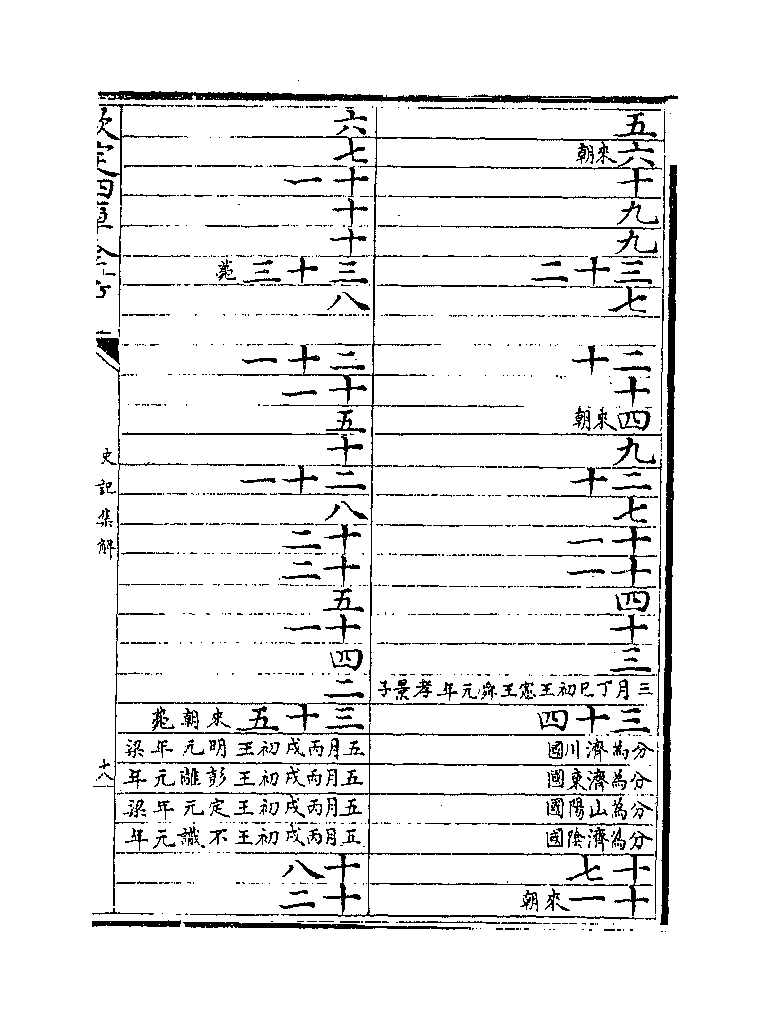 五
六來朝
十
九
九
三十二
七
二十
十
四來朝
九
二十
七
十一
十一
四
十
三
三月丁巳初王憲王舜元年孝景子
三十四
分為濟川國
分為濟東國
分為山陽國
分為濟陰國
十七
十一來朝
六
七
十一
十
十
三十三薨
八
二十一
十一
五
十
二十一
八
十二
十二
五
十一
四
二
三十五來朝薨
五月丙戌初王明元年梁
五月丙戌初王彭離元年
五月丙戌初王定元年梁
五月丙戌初王不識元年
十八
十二
欽定四庫全書
史記集解
十八